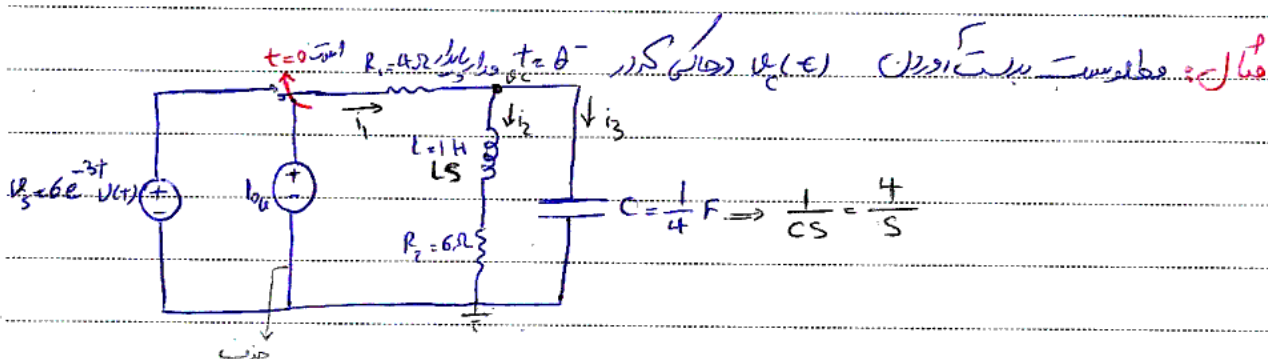 مثال: مطلوبست بدست آوردن v_c(t) درحالی که در t=0⁻ مدار پایدار است
t=0
R₁=4Ω
v_c
i₁
i₂
i₃
L=1H
LS
v_s=6e^{-3t} u(t)
+
-
10v
+
-
C=1/4 F ⟹ 1/CS = 4/S
R₂=6Ω
حذف